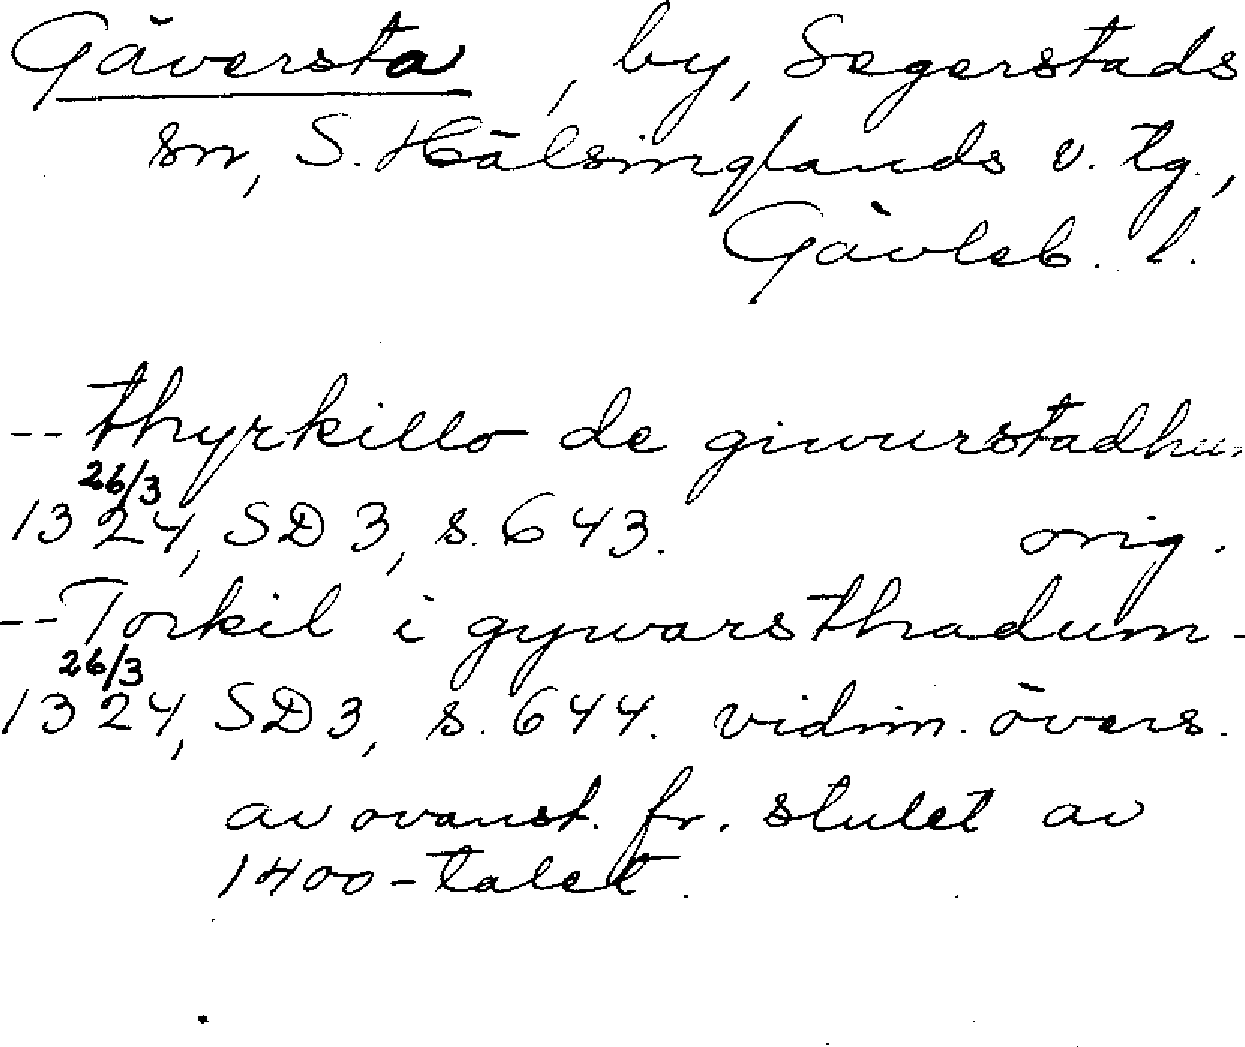 Gäversta, by, Segerstads
sn, S. Hälsinglands v. tg.,
Gävleb. l.
-- thyrkillo de giwurstadhum
26/3
1324, SD 3, s. 643. orig.
-- Torkil i gywarsthadum -
26/3
1324, SD 3, s. 644. vidim. övers.
av ovanst. fr. slutet av
1400-talet.